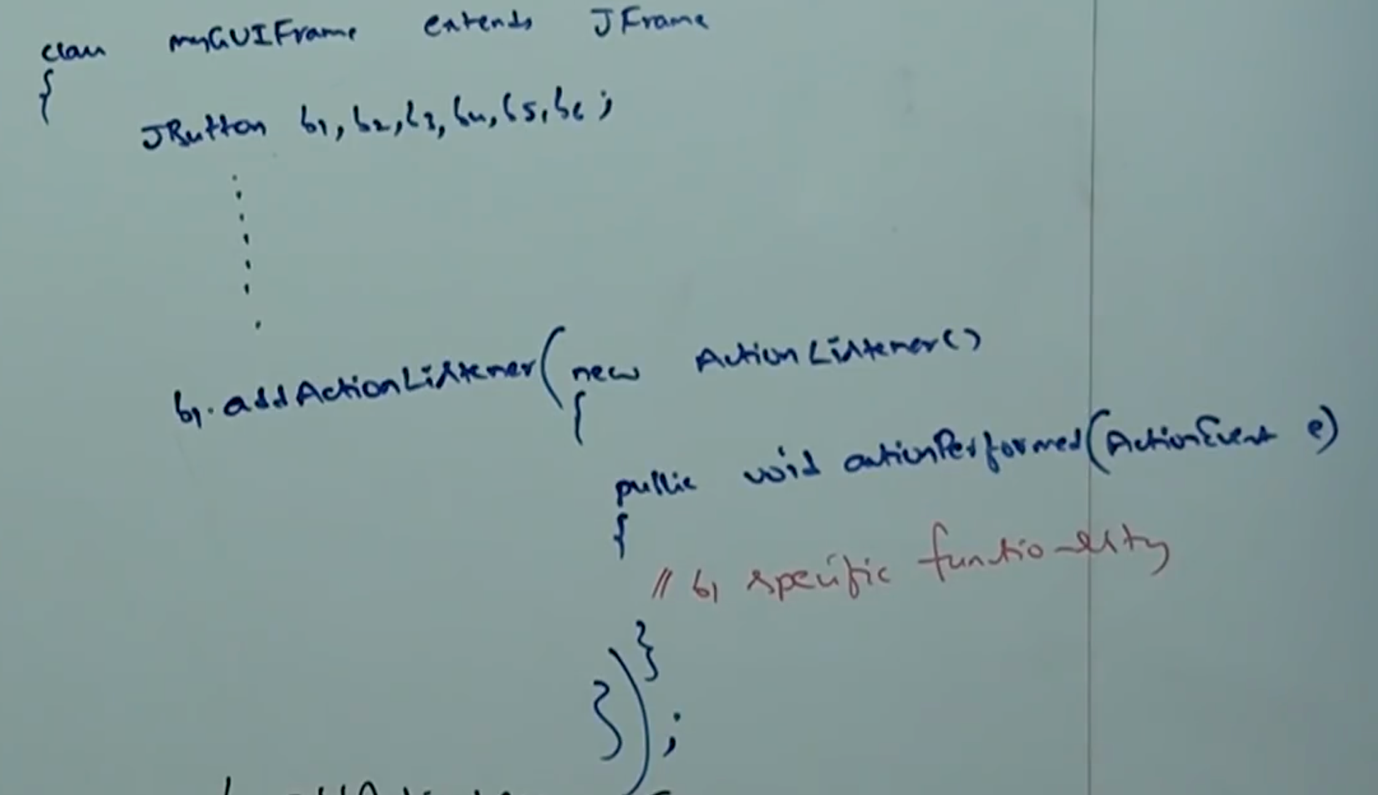 class myGUIFrame extends JFrame
{
JButton b1, b2, b3, b4, b5, b6;
b1.addActionListener(new ActionListener()
{
public void actionPerformed(ActionEvent e)
{
// b1 specific functionality
}
});